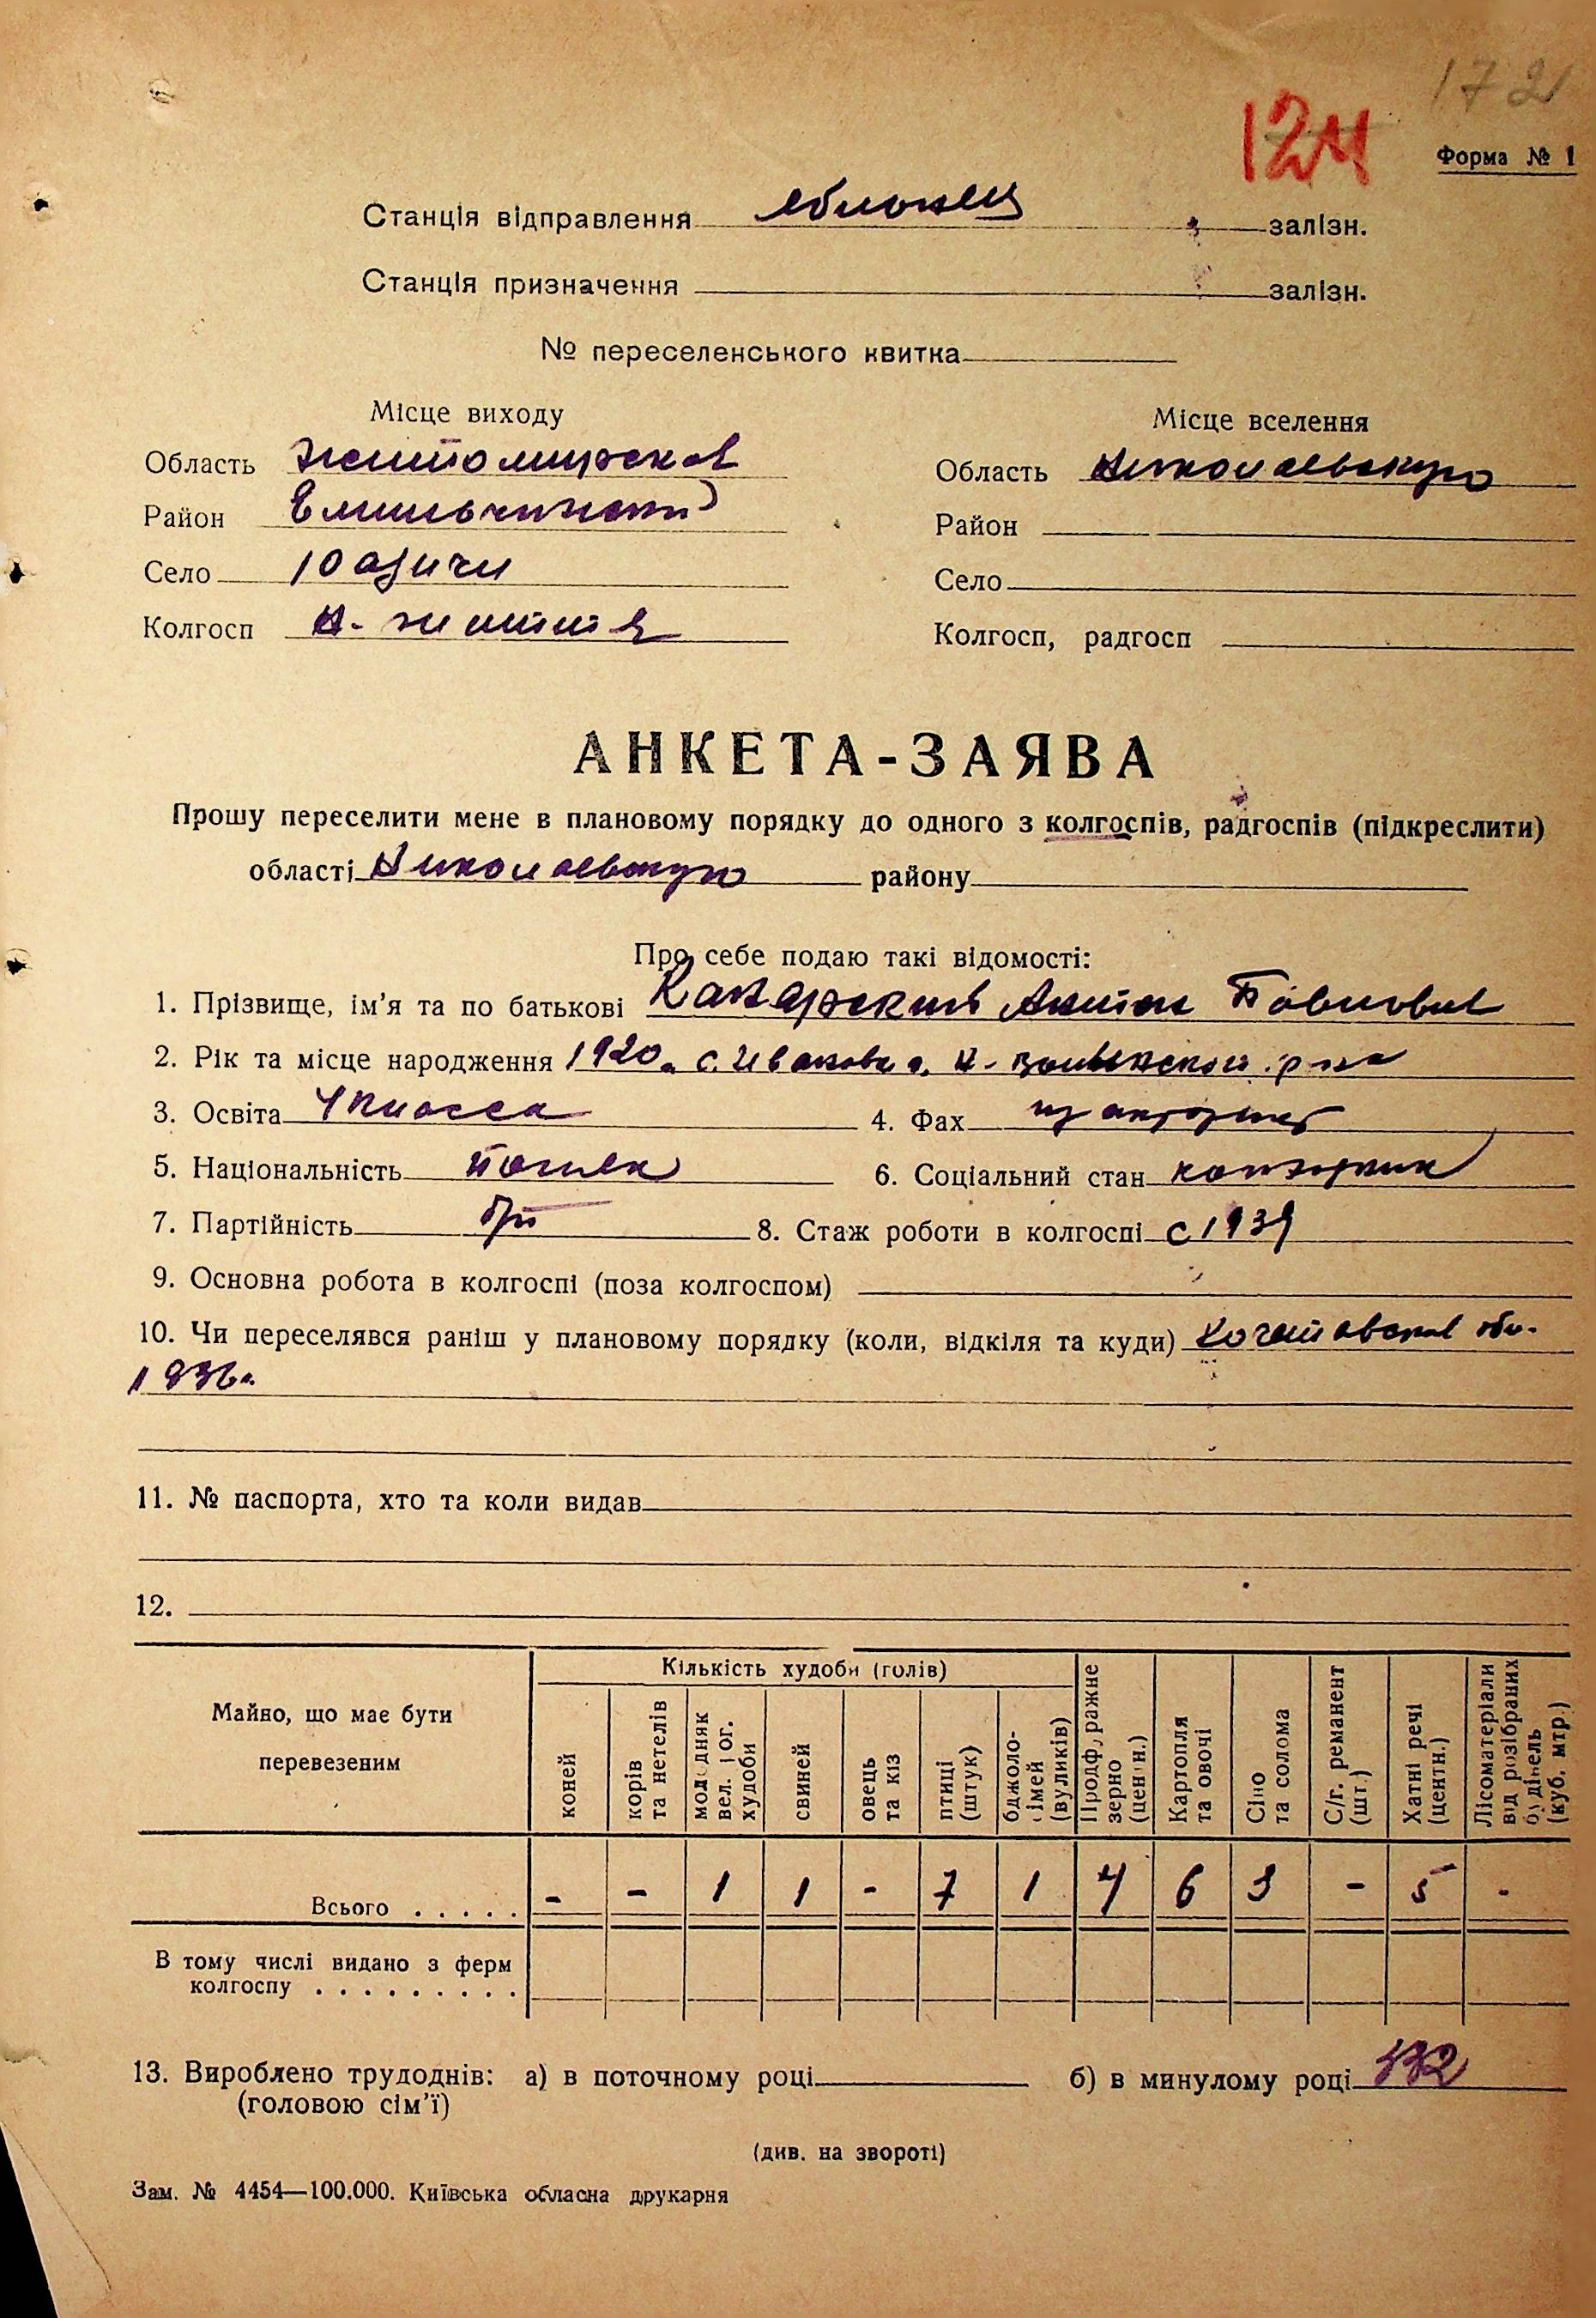 172
124
Форма № 1
Станція відправлення Яблонец залізн.
Станція призначення залізн.
№ переселенського квитка
Місце виходу
Місце вселення
Область Житомирская
Область Николаевскую
Район Емильчинский
Район
Село Юзичи
Село
Колгосп Н-життя
Колгосп, радгосп
АНКЕТА-ЗАЯВА
Прошу переселити мене в плановому порядку до одного з колгоспів, радгоспів (підкреслити)
області Николаевскую району
Про себе подаю такі відомості:
1. Прізвище, ім'я та по батькові Антон Павлович
2. Рік та місце народження 1920 г. с. Ивановка, Н-Волынского р-на
3. Освіта 4 класса 4. Фах
5. Національність поляк 6. Соціальний стан колхозник
7. Партійність б/п 8. Стаж роботи в колгоспі с 1939
9. Основна робота в колгоспі (поза колгоспом)
10. Чи переселявся раніш у плановому порядку (коли, відкіля та куди) Кочетавская обл.
1936 г.
11. № паспорта, хто та коли видав
12.
Майно, що має бути перевезеним
Кількість худоби (голів)
коней
корів та нетелів
молодняк вел. рог. худоби
свиней
овець та кіз
птиці (штук)
бджоло-сімей (вуликів)
Продфуражне зерно (центн.)
Картопля та овочі
Сіно та солома
С/г. реманент (шт.)
Хатні речі (центн.)
Лісоматеріали від розібраних будівель (куб. мтр.)
Всього . . . . . - - 1 1 - 7 1 4 6 3 - 5 -
В тому числі видано з ферм
колгоспу . . . . . . . . .
13. Вироблено трудоднів: а) в поточному році б) в минулому році 432
(головою сім'ї)
(див. на звороті)
Зам. № 4454—100.000. Київська обласна друкарня